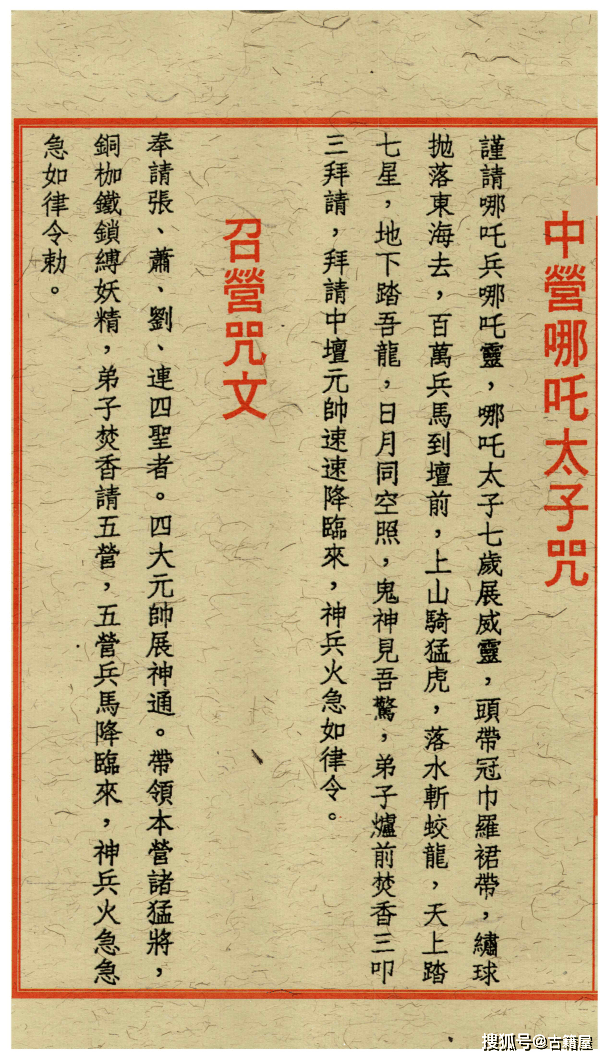 中營哪吒太子咒
謹請哪吒兵哪吒靈，哪吒太子七歲展威靈，頭帶冠巾羅裙帶，繡球
拋落東海去，百萬兵馬到壇前，上山騎猛虎，落水斬蛟龍，天上踏
七星，地下踏吾龍，日月同空照，鬼神見吾驚，弟子爐前焚香三叩
三拜請，拜請中壇元帥速速降臨來，神兵火急如律令。
召營咒文
奉請張、蕭、劉、連四聖者。四大元帥展神通。帶領本營諸猛將，
銅枷鐵鎖縛妖精，弟子焚香請五營，五營兵馬降臨來，神兵火急急
急如律令勅。
搜狐号@古籍屋